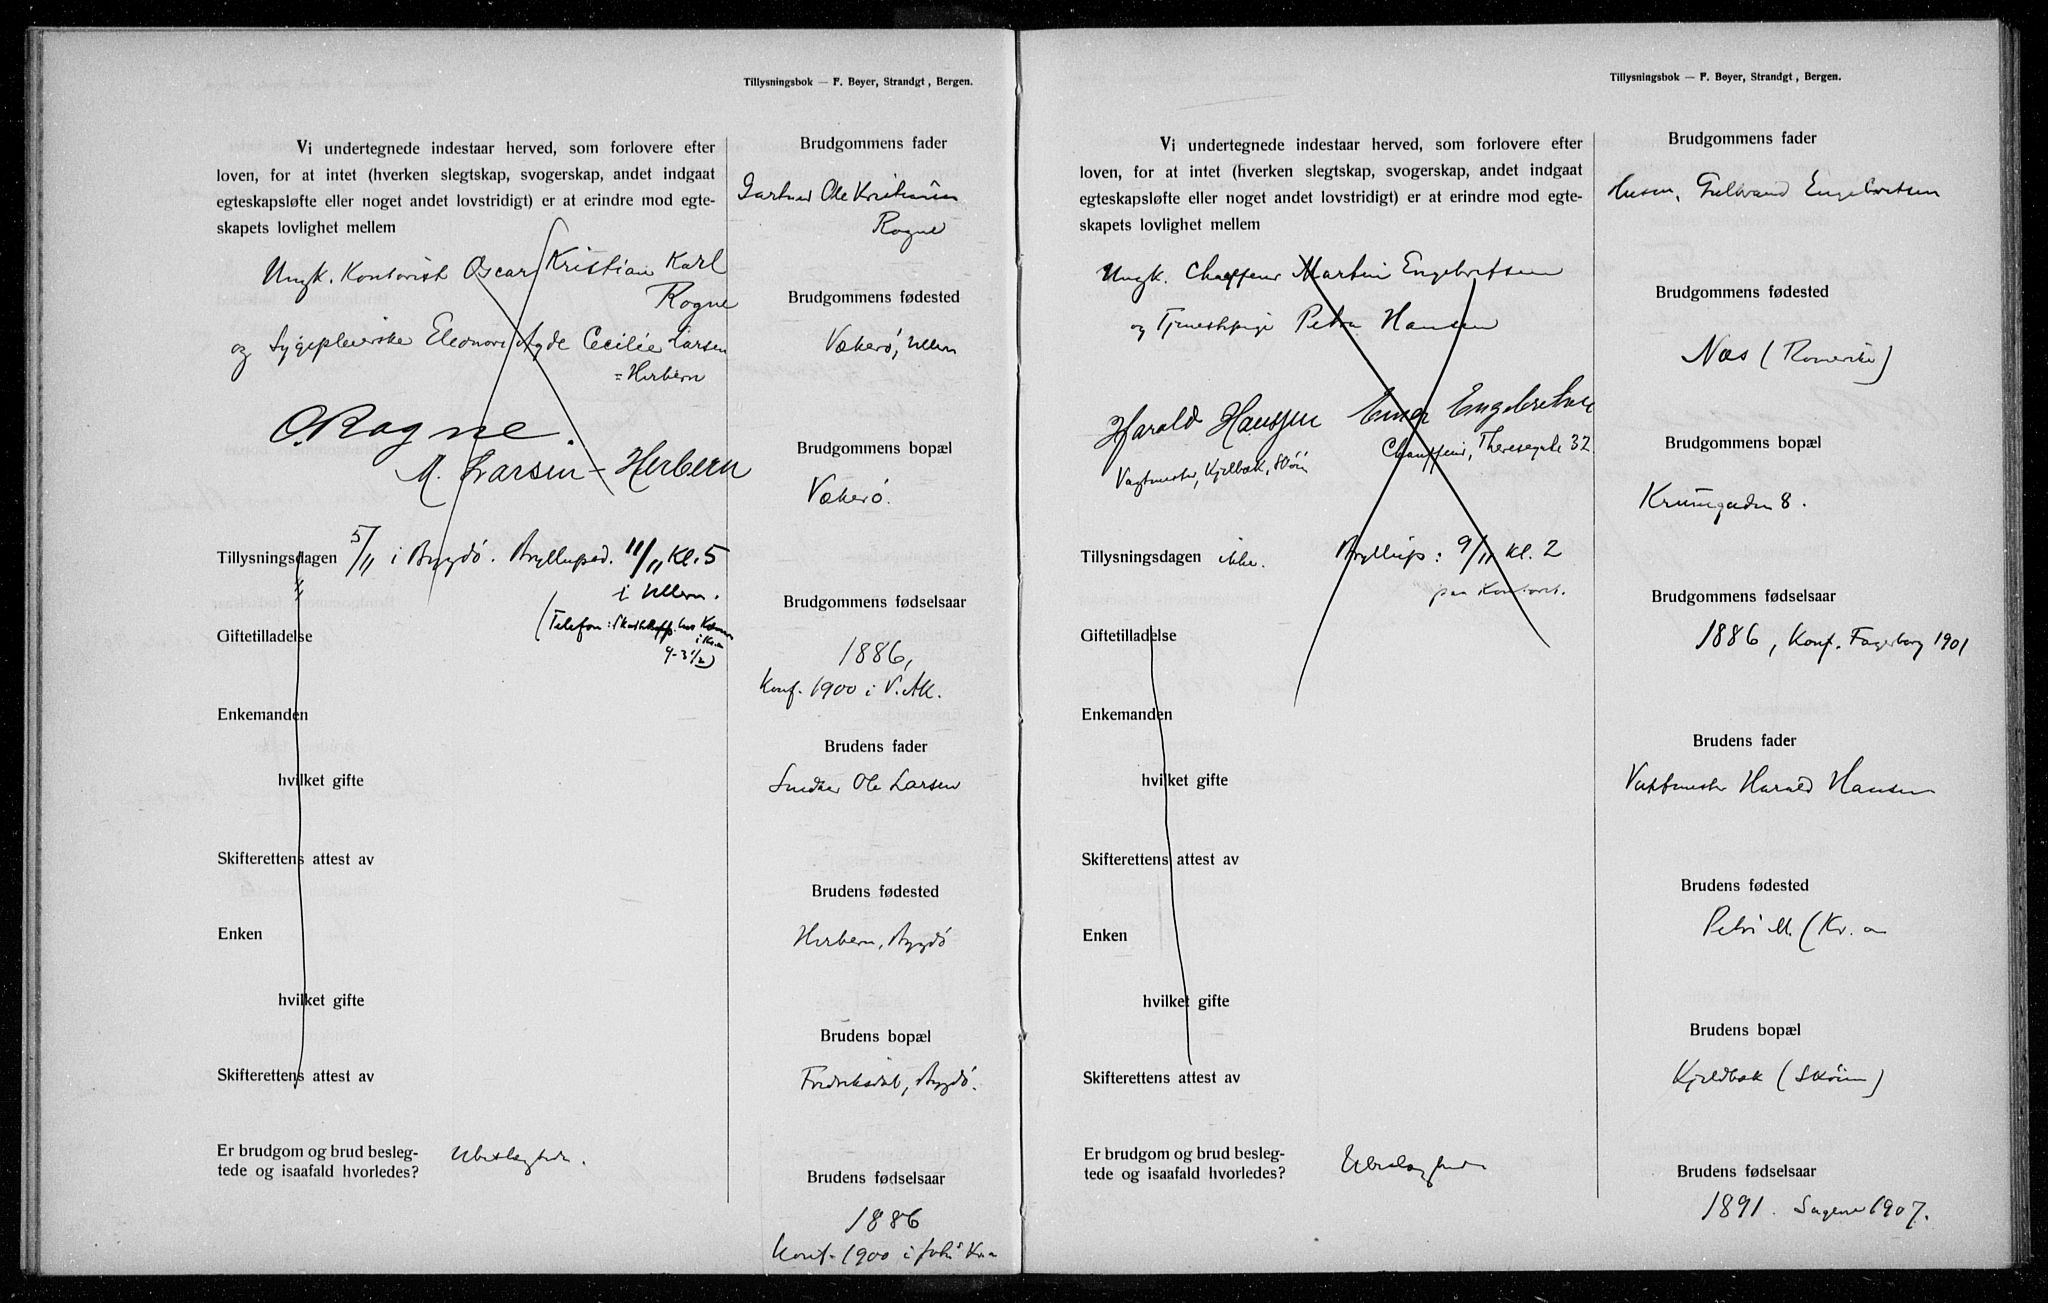 Tillysningsbok — F. Beyer, Strandgt, Bergen.
Vi undertegnede indestaar herved, som forlovere efter
loven, for at intet (hverken slegtskap, svogerskap, andet indgaat
egteskapsløfte eller noget andet lovstridigt) er at erindre mod egte-
skapets lovlighet mellem
Ungk. Kontorist Oscar Kristian Karl
Rogne
og Sygepleierske Eleonore Agde Cecilie Larsen
=Herbern
O. Rogne.
M. Larsen-Herbern
Tillysningsdagen 5/11 i Bygdø. Bryllupsd. 11/11 Kl. 5
i Ullern.
(Telefon: hos
i Kr.a
9-3 1/2)
Giftetilladelse
Enkemanden
hvilket gifte
Skifterettens attest av
Enken
hvilket gifte
Skifterettens attest av
Er brudgom og brud besleg-
tede og isaafald hvorledes? Ubeslegtede.
Brudgommens fader
Gartner Ole Kristian
Rogne
Brudgommens fødested
Vækerø, Ullern
Brudgommens bopæl
Vækerø.
Brudgommens fødselsaar
1886,
Konf. 1900 i V. Ak.
Brudens fader
Snedker Ole Larsen
Brudens fødested
Herbern, Bygdø
Brudens bopæl
Fredriksdal, Bygdø.
Brudens fødselsaar
1886
Konf. 1900 i Joh's Kr.a
Tillysningsbok — F. Beyer, Strandgt, Bergen.
Vi undertegnede indestaar herved, som forlovere efter
loven, for at intet (hverken slegtskap, svogerskap, andet indgaat
egteskapsløfte eller noget andet lovstridigt) er at erindre mod egte-
skapets lovlighet mellem
Ungk. Chauffeur Martin Engebretsen
og Tjenestepige Petra Hansen
Harald Hanssen Einar Engebretsen
Chauffeur, Theresegate 32
Vagtmester, Kjelbæk, Skøien
Tillysningsdagen ikke. Bryllup: 9/11 Kl. 2
paa Kontoret.
Giftetilladelse
Enkemanden
hvilket gifte
Skifterettens attest av
Enken
hvilket gifte
Skifterettens attest av
Er brudgom og brud besleg-
tede og isaafald hvorledes? Ubeslegtede
Brudgommens fader
Husm. Gulbrand Engebretsen
Brudgommens fødested
Næs (Romerike)
Brudgommens bopæl
Krumgaden 8.
Brudgommens fødselsaar
1886, Konf. Fagerborg 1901
Brudens fader
Vaktmester Harald Hansen
Brudens fødested
Petri M. (Kr.a
Brudens bopæl
Kjeldbæk (Skøien)
Brudens fødselsaar
1891. Sagene 1907.